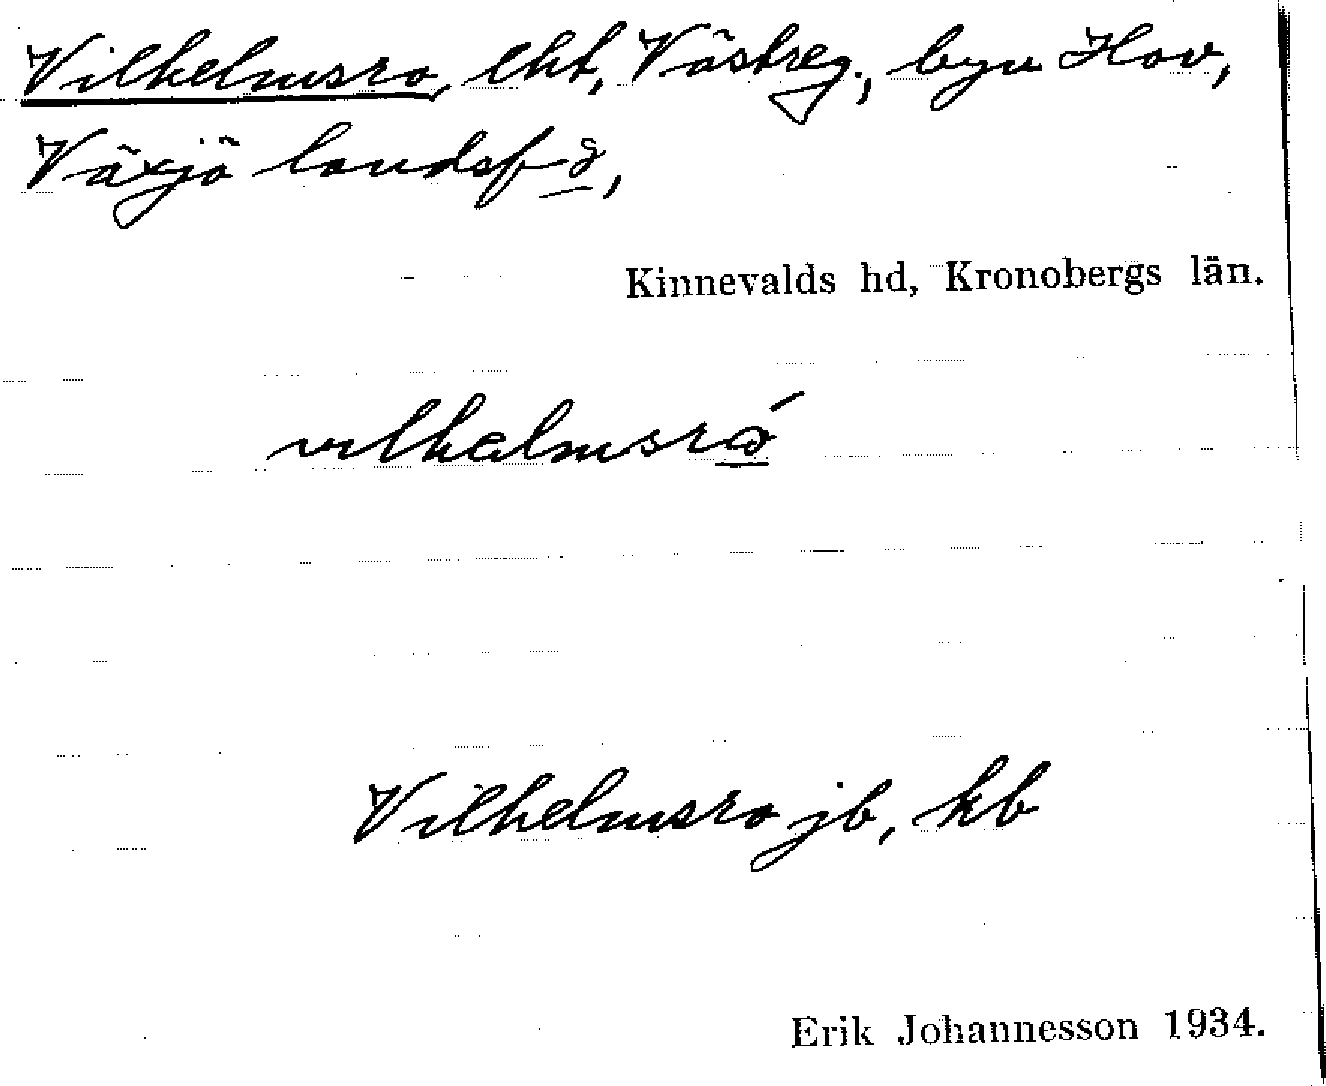 Vilhelmsro, lht, Västreg., byn Hov,
Växjö landsf d,
Kinnevalds hd, Kronobergs län.
vilhelmsró
Vilhelmsro jb, kb
Erik Johannesson 1934.